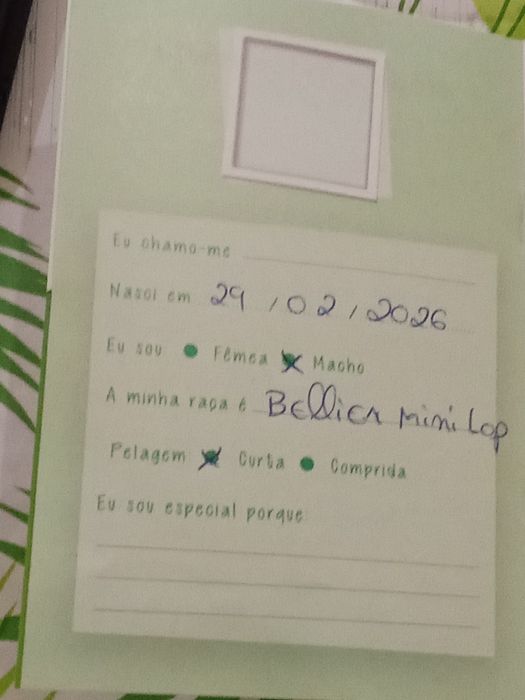 Eu chamo-me
Nasci em 29/02/2026
Eu sou Fêmea Macho
A minha raça é BEllier Mini Lop
Pelagem Curta Comprida
Eu sou especial porque: